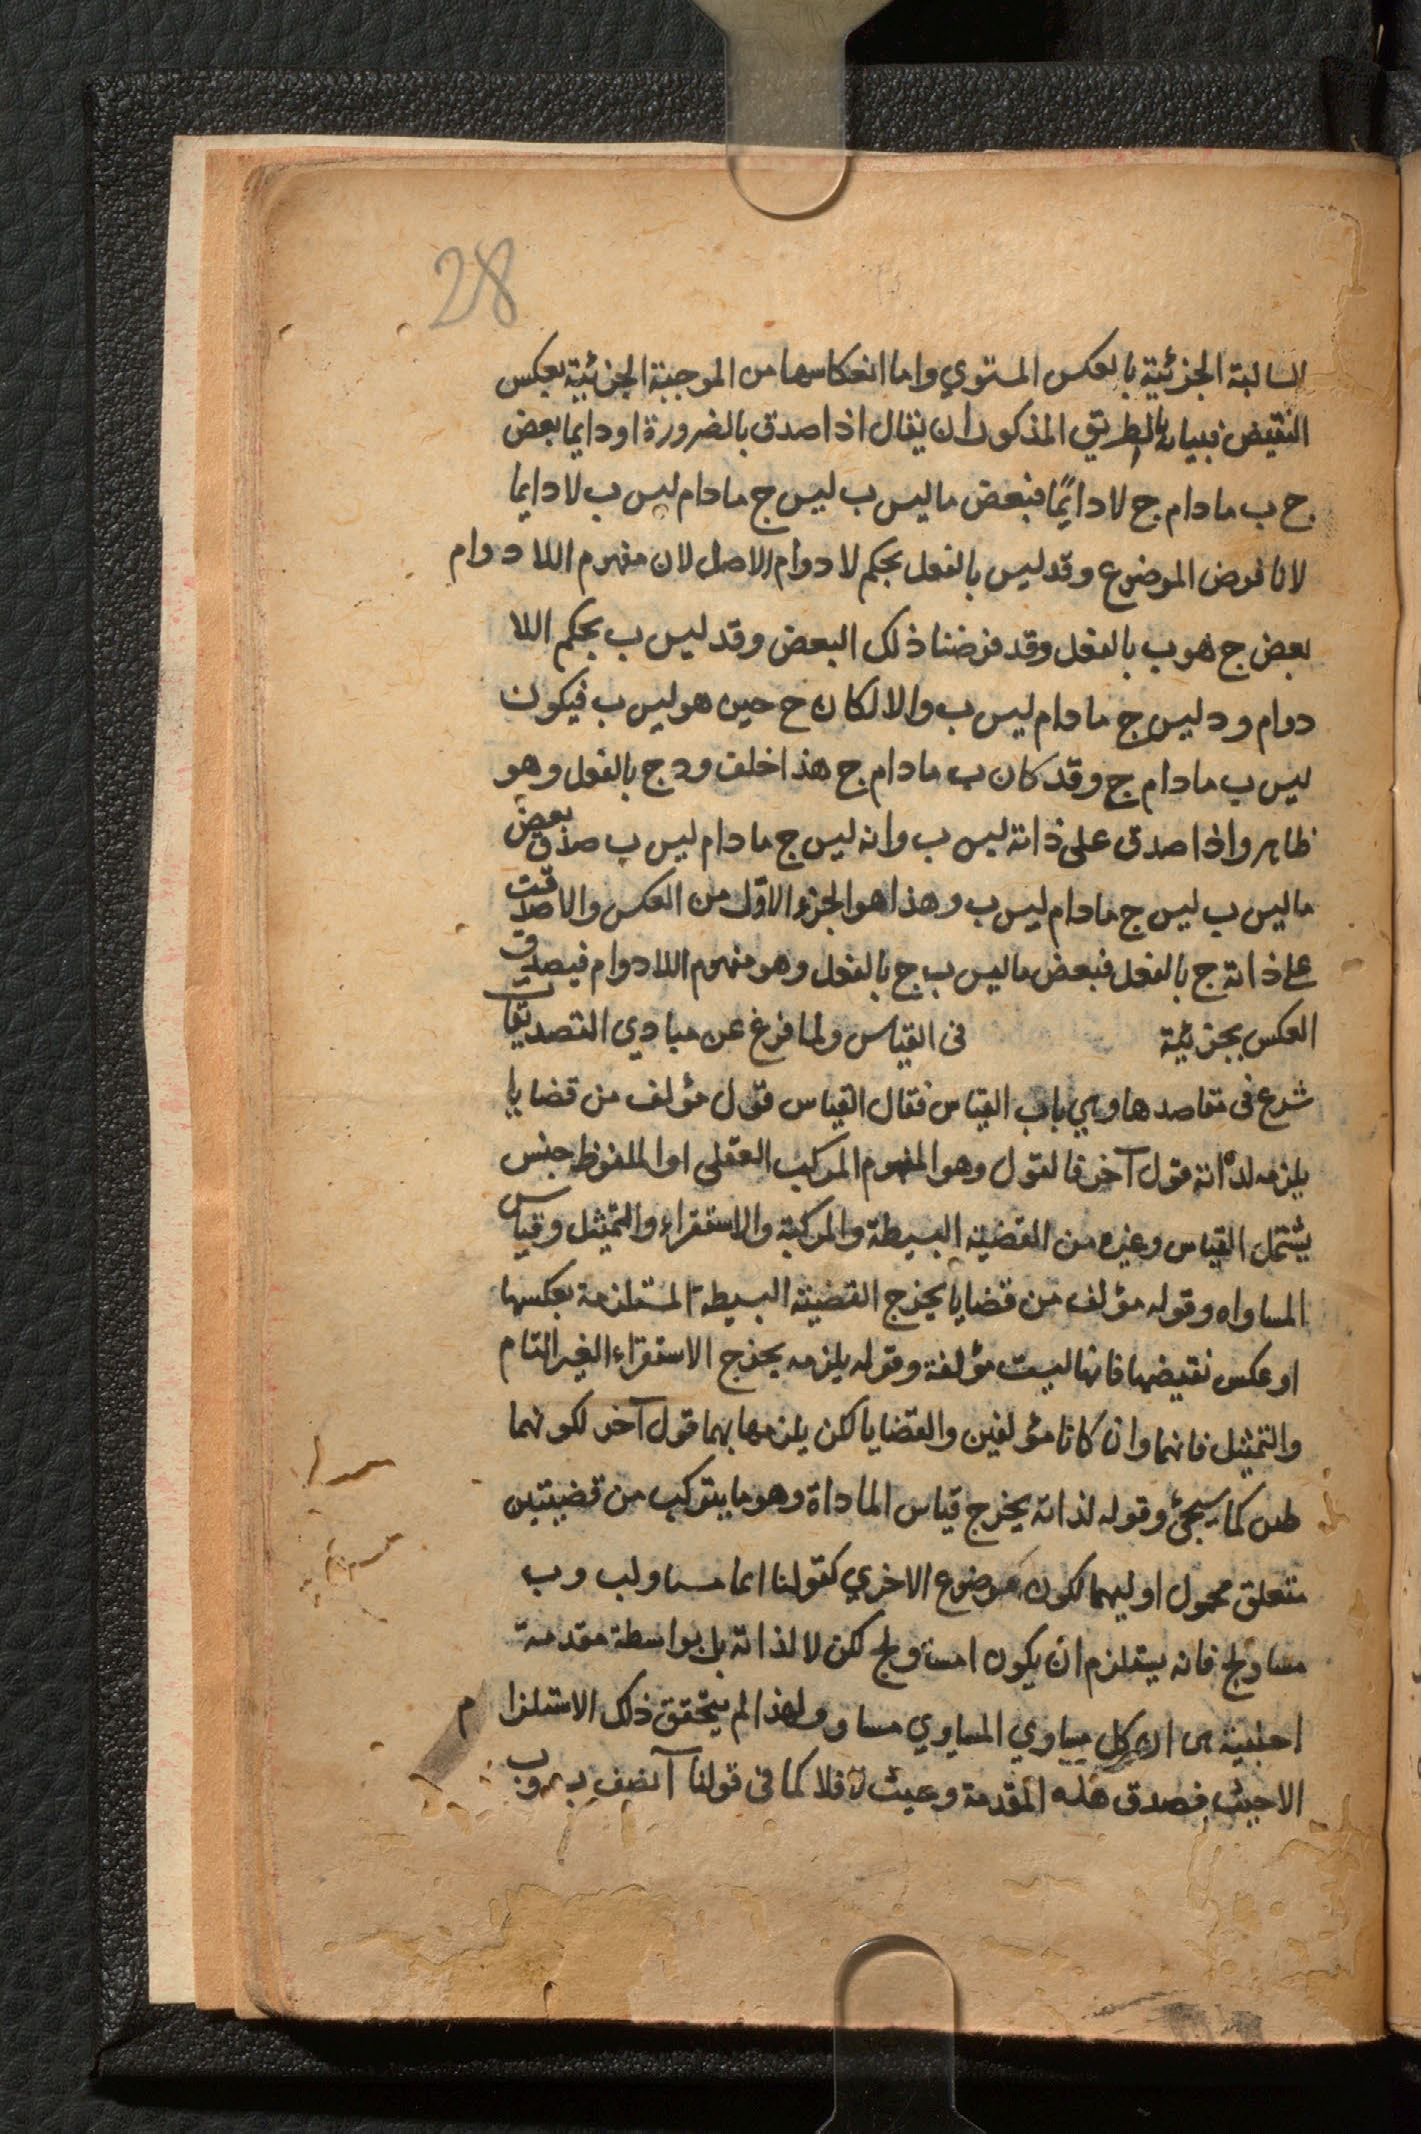 28
السالبة الجزئية بالعكس المستوي واما انعكاسها من الموجبة الجزئية بعكس
النقيض فبيانه بالطريق المذكور ان يقال اذا صدق بالضرورة او دايما بعض
ج ب مادام ج لا دايمًا فبعض ما ليس ب ليس ج مادام ليس ب لا دايما
لانا نفرض الموضوع وقد ليس بالفعل بحكم لا دوام الاصل لان مفهوم اللا دوام
بعض ج هو ب بالفعل وقد فرضنا ذلك البعض وقد ليس ب بحكم اللا
دوام ود ليس ج مادام ليس ب والا لكان ج حين هو ليس ب فيكون
ليس ب مادام ج وقد كان ب مادام ج هذا خلف ود ج بالفعل وهو
ظاهر واذا صدق على ذاته ليس ب وانه ليس ج مادام ليس ب صدق بعض
ما ليس ب ليس ج مادام ليس ب وهذا هو الجزء الاول من العكس والا صدقت
على ذاته ج بالفعل فبعض ما ليس ب ج بالفعل وهو مفهوم اللا دوام فيصدق
العكس بجزئية في القياس ولما فرغ عن مبادي التصديقات
شرع في مقاصدها وهي باب القياس فقال القياس قول مؤلف من قضايا
يلزمه لذاته قول آخر فالقول وهو المفهوم المركب العقلي او الملفوظ جنس
يشتمل القياس وغيره من القضية البسيطة والمركبة والاستقراء والتمثيل وقياس
المساواه وقوله مؤلف من قضايا يخرج القضية البسيطة المستلزمة بعكسها
او عكس نقيضها فانها ليست مؤلفة وقوله يلزمه يخرج الاستقراء الغير التام
والتمثيل فانهما وان كانا مؤلفين والقضايا لكن يلزمها بهما قول آخر لكونهما
كما سيجئ وقوله لذاته يخرج قياس الماداة وهو ما يتركب من قضيتين
متعلق محمول اوليهما لكون موضوع الاخري كقولنا مساو لب وب
مساو لج فانه يستلزم ان يكون ا مساو لج لكن لا لذاته بل بواسطة مقدمة
اجنبية كل مساوي المساوي مساو ولهذا لم يتحقق ذلك الاستلزام
الا حيث فصدق هذه المقدمة وحيث لا فلا كما في قولنا آ نصف ب وب